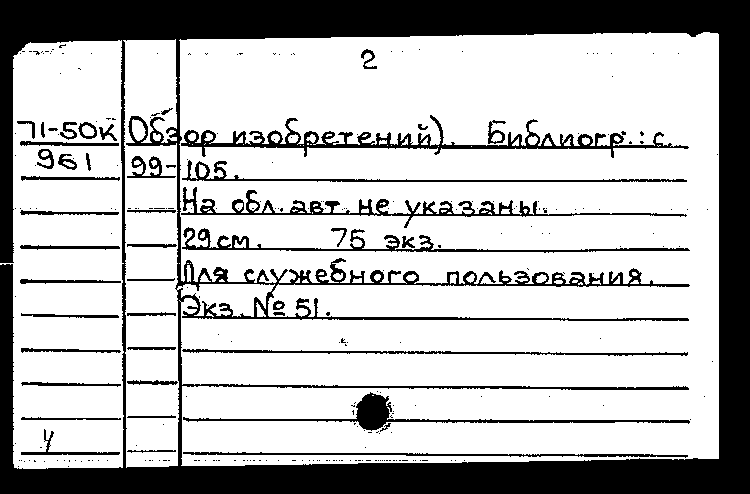 2
71-50К Обзор изобретений). Библиогр.: с.
961 99-105.
На обл. авт. не указаны.
29 см. 75 экз.
Для служебного пользования.
Экз. № 51.